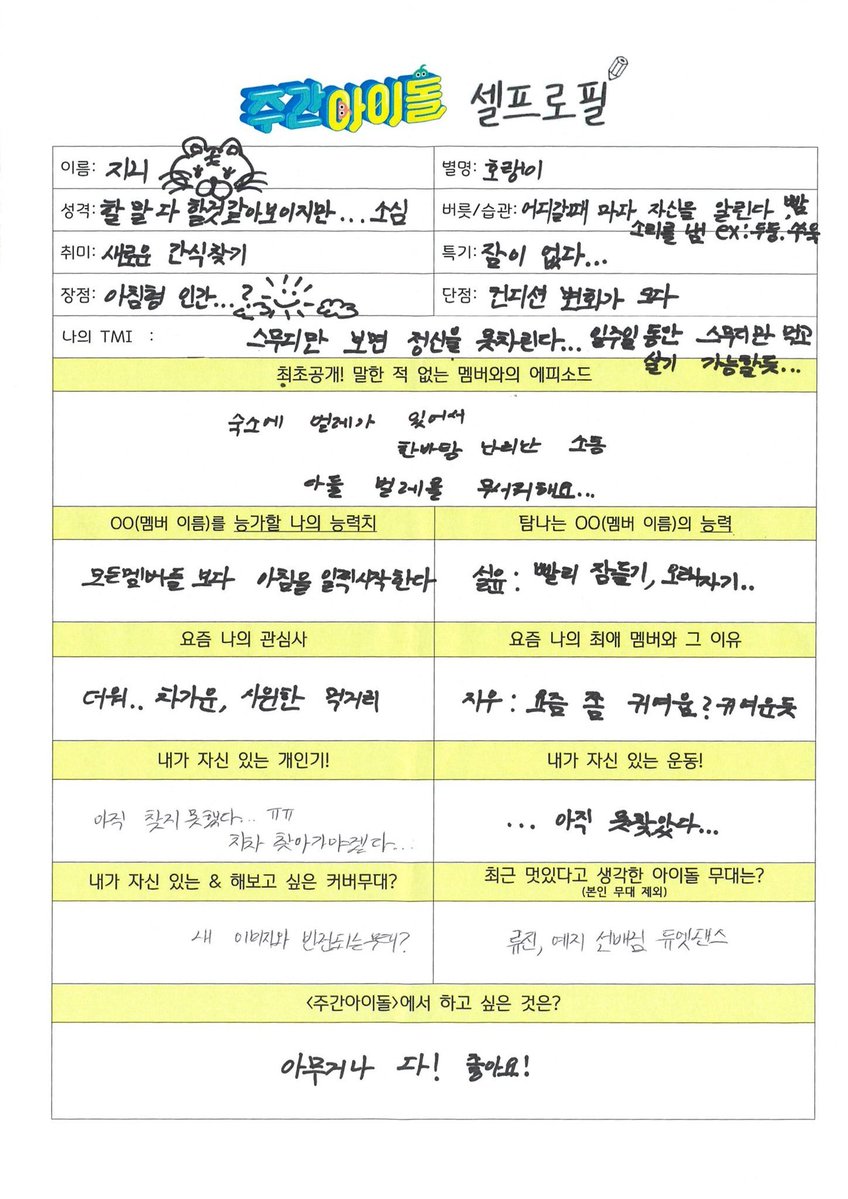 주간아이돌 셀프로필
이름: 지니
별명: 호랑이
성격: 할 말 다 할것같아보이지만... 소심
버릇/습관: 어디갈때 마다 자신을 알린다
소리를 냄 ex: 두둥. 쑤욱
취미: 새로운 간식찾기
특기: 잘이 없다...
장점: 아침형 인간...?
단점: 컨디션 변화가 크다
나의 TMI :
스무디만 보면 정신을 못차린다... 일주일 동안 스무디만 먹고
살기 가능할듯...
최초공개! 말한 적 없는 멤버와의 에피소드
숙소에 벌레가 있어서
한바탕 난리난 소동
아돌 벌레를 무서워해요...
OO(멤버 이름)를 능가할 나의 능력치
탐나는 OO(멤버 이름)의 능력
모든멤버들 보다 아침을 일찍시작한다
설윤: 빨리 잠들기, 오래자기..
요즘 나의 관심사
요즘 나의 최애 멤버와 그 이유
더워.. 차가운, 시원한 먹거리
지우: 요즘 쫌 귀여움? 귀여운듯
내가 자신 있는 개인기!
내가 자신 있는 운동!
아직 찾지 못했다... ㅠㅠ
차차 찾아가야겠다...
... 아직 못찾았다...
내가 자신 있는 & 해보고 싶은 커버무대?
최근 멋있다고 생각한 아이돌 무대는?
(본인 무대 제외)
내 이미지와 반전되는 무대?
류진, 예지 선배님 듀엣댄스
<주간아이돌>에서 하고 싶은 것은?
아무거나 다! 좋아요!